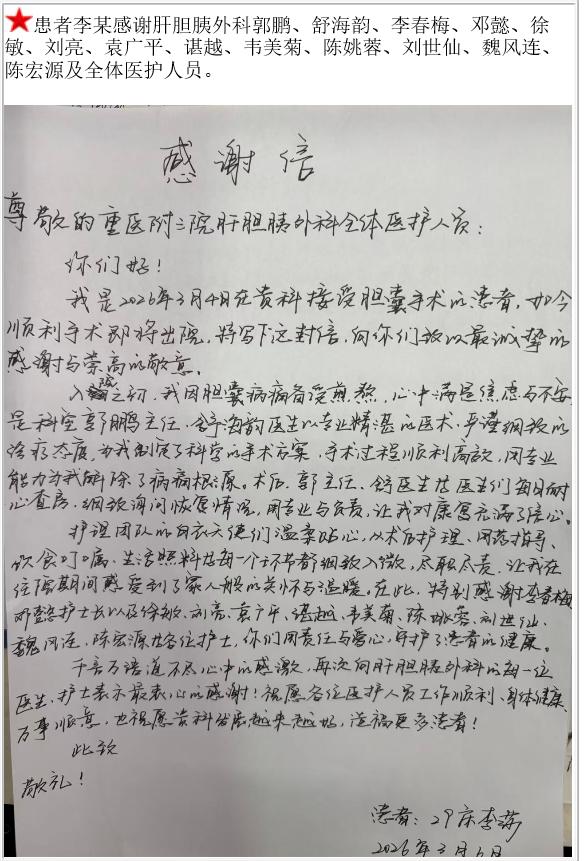 患者李某感谢肝胆胰外科郭鹏、舒海韵、李春梅、邓懿、徐
敏、刘亮、袁广平、谌越、韦美菊、陈姚蓉、刘世仙、魏风连、
陈宏源及全体医护人员。
感谢信
尊敬的重医附二院肝胆胰外科全体医护人员:
你们好!
我是2026年3月4日在贵科接受胆囊手术的患者,如今
顺利手术即将出院,特写下这封信,向你们致以最诚挚的
感谢与崇高的敬意。
入院之初,我因胆囊病痛备受煎熬,心中满是焦虑与不安,
是科室郭鹏主任、舒海韵医生以专业精湛的医术、严谨细致的
诊疗态度,为我制定了科学的手术方案,手术过程顺利高效,用专业
能力为我解除了病痛根源。术后,郭主任、舒医生及医生们每日耐
心查房,细致询问恢复情况,用专业与负责,让我对康复充满了信心。
护理团队的白衣天使们温柔贴心,从术后护理、用药指导、
饮食叮嘱、生活照料及每一个环节都细致入微,尽职尽责,让我在
住院期间感受到了家人般的关怀与温暖。在此,特别感谢李春梅
邓懿护士长以及徐敏、刘亮、袁广平、谌越、韦美菊、陈姚蓉、刘世仙、
魏风连、陈宏源及各位护士,你们用责任与爱心,守护了患者的健康。
千言万语道不尽心中的感激,再次向肝胆胰外科的每一位
医生、护士表示最衷心的感谢!祝愿各位医护人员工作顺利、身体健康、
万事顺意,也祝愿贵科发展越来越好,造福更多患者!
此致
敬礼!
患者:29床李
2026年3月 日